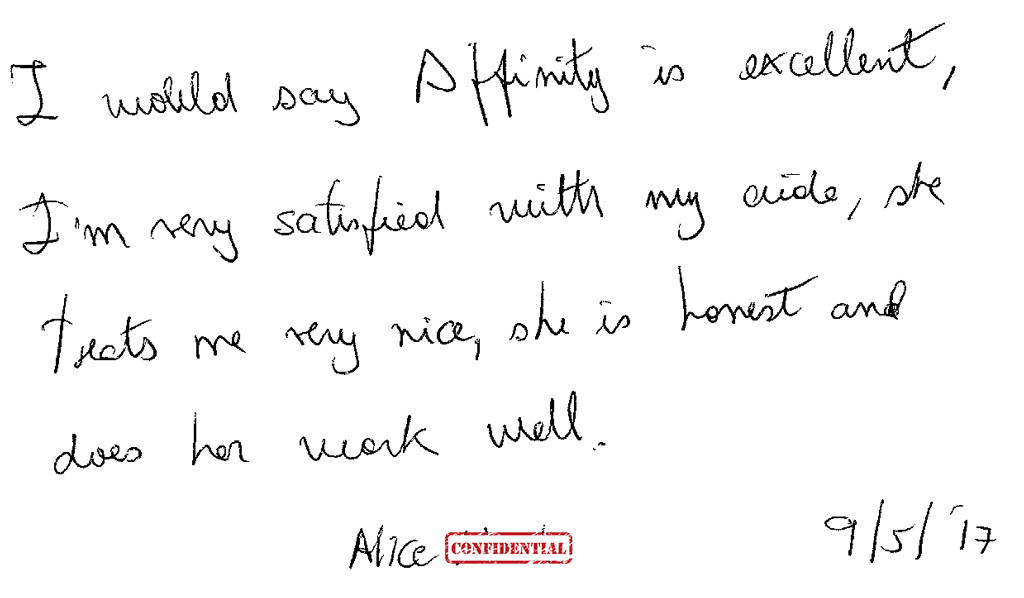 I would say Affinity is excellent,
I'm very satisfied with my aide, she
treats me very nice, she is honest and
does her work well.
Alice CONFIDENTIAL
9/5/'17